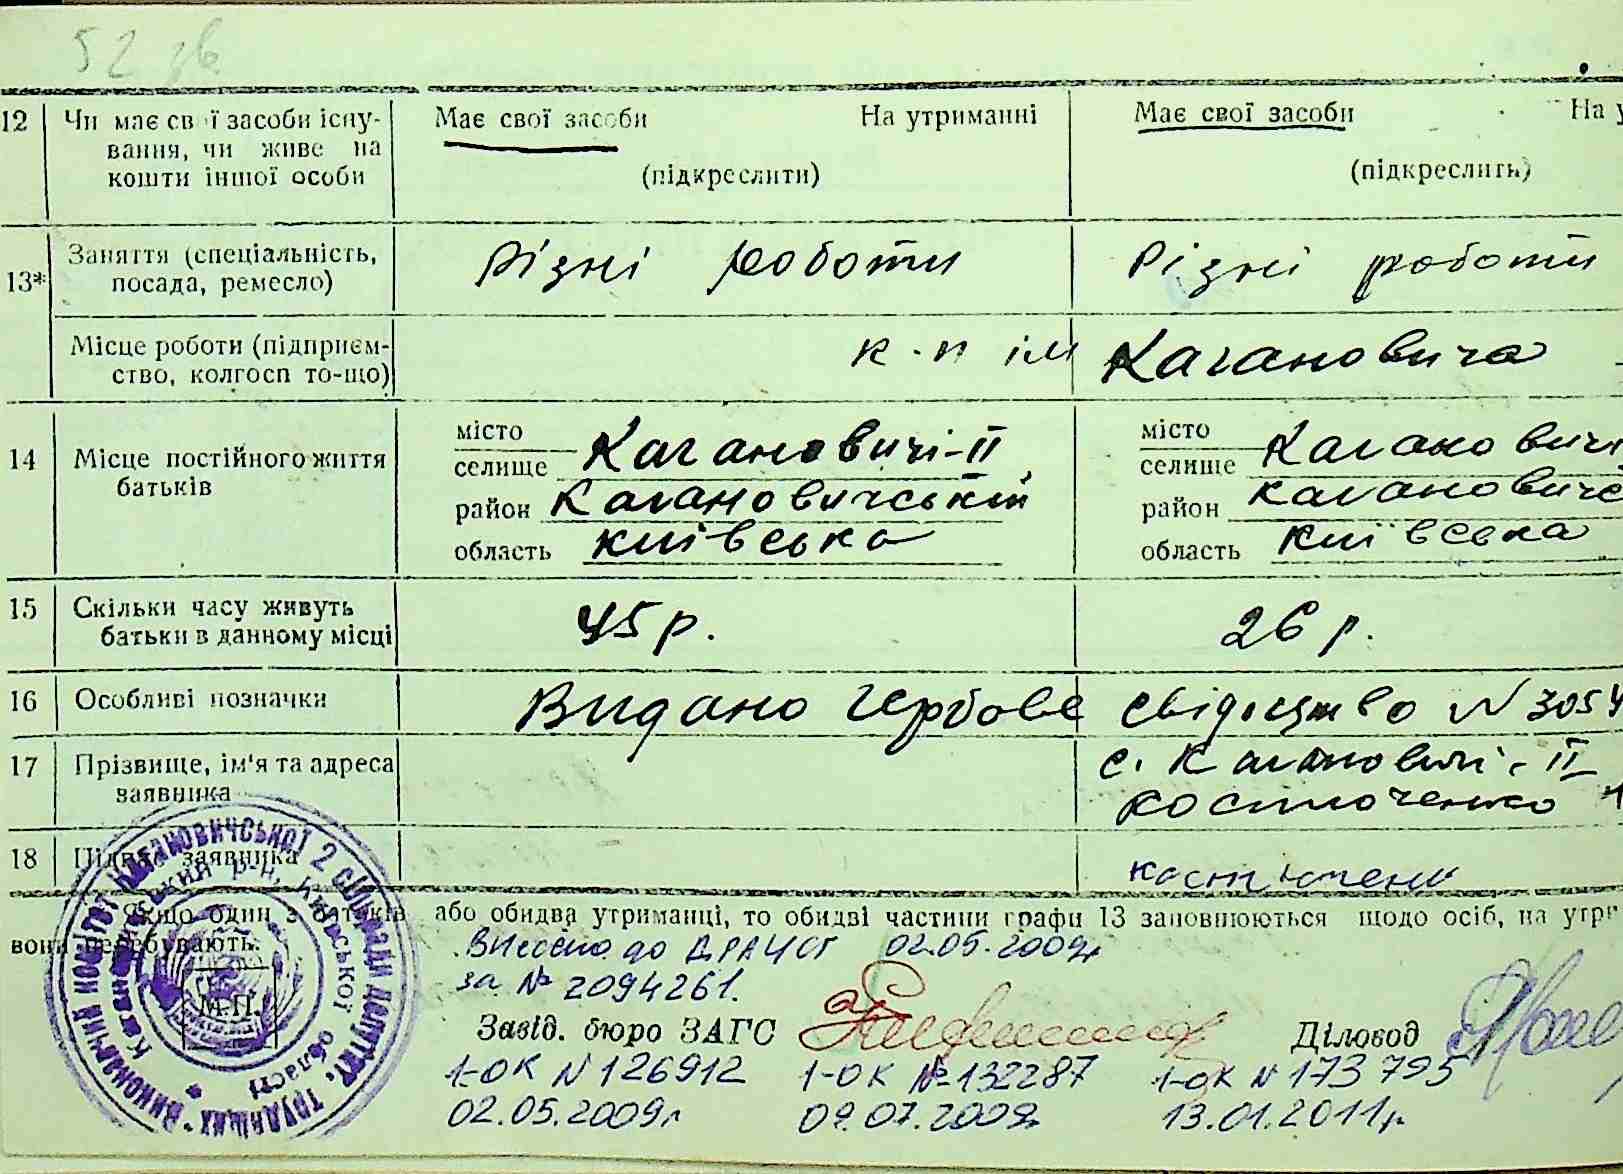 52 зв
12 Чи має свої засоби існу- Має свої засоби На утриманні Має свої засоби На у
вання, чи живе на
кошти іншої особи (підкреслити) (підкреслить)
Заняття (спеціальність, Різні роботи Різні роботи
13* посада, ремесло)
Місце роботи (підприєм- к-п ім Кагановича
ство, колгосп то-що)
місто місто
14 Місце постійного життя селище Кагановичі-ІІ селище Кагановичі
батьків район Кагановичський район Кагановичс
область київська область київська
15 Скільки часу живуть 45 р. 26 р.
батьки в данному місці
16 Особливі позначки Видано гербове свідоцтво N 3054
17 Прізвище, ім'я та адреса с. Кагановичі-ІІ
заявника костюченко
18 Підпис заявника костючен
Якщо один з батьків або обидва утриманці, то обидві частини графи 13 заповнюються щодо осіб, на утри
вони перебувають.
Внесено до ДРАЦСГ 02.05.2009р
за № 2094261.
М.П.
Завід. бюро ЗАГС Діловод
1-ОК N 126912 1-ОК № 132287 1-ОК N 173795
02.05.2009р 09.07.2009р 13.01.2011р
Виконавчий комітет Кагановичської 2 сільради депутат. трудящих
Київської області